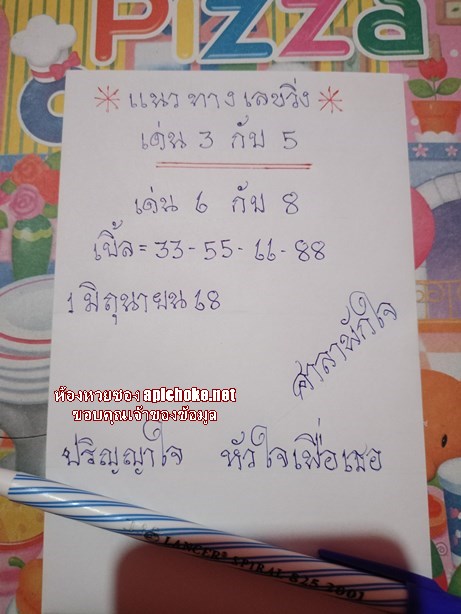 Pizza
* แนวทางเลขวิ่ง *
เด่น 3 กับ 5
เด่น 6 กับ 8
เบิ้ล = 33 - 55 - 66 - 88
1 มิถุนายน 68
ศาลาพักใจ
ห้องหวยซอง apichoke.net
ขอบคุณเจ้าของข้อมูล
ปริญญาใจ หัวใจเพื่อเธอ
LANCER SPIRAL 825 2001